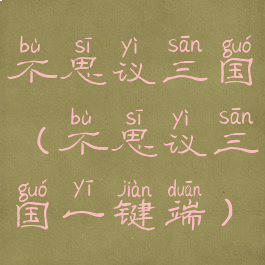 bù sī yì sān guó
不思议三国
bù sī yì sān
（不思议三
guó yī jiàn duān
国一键端）